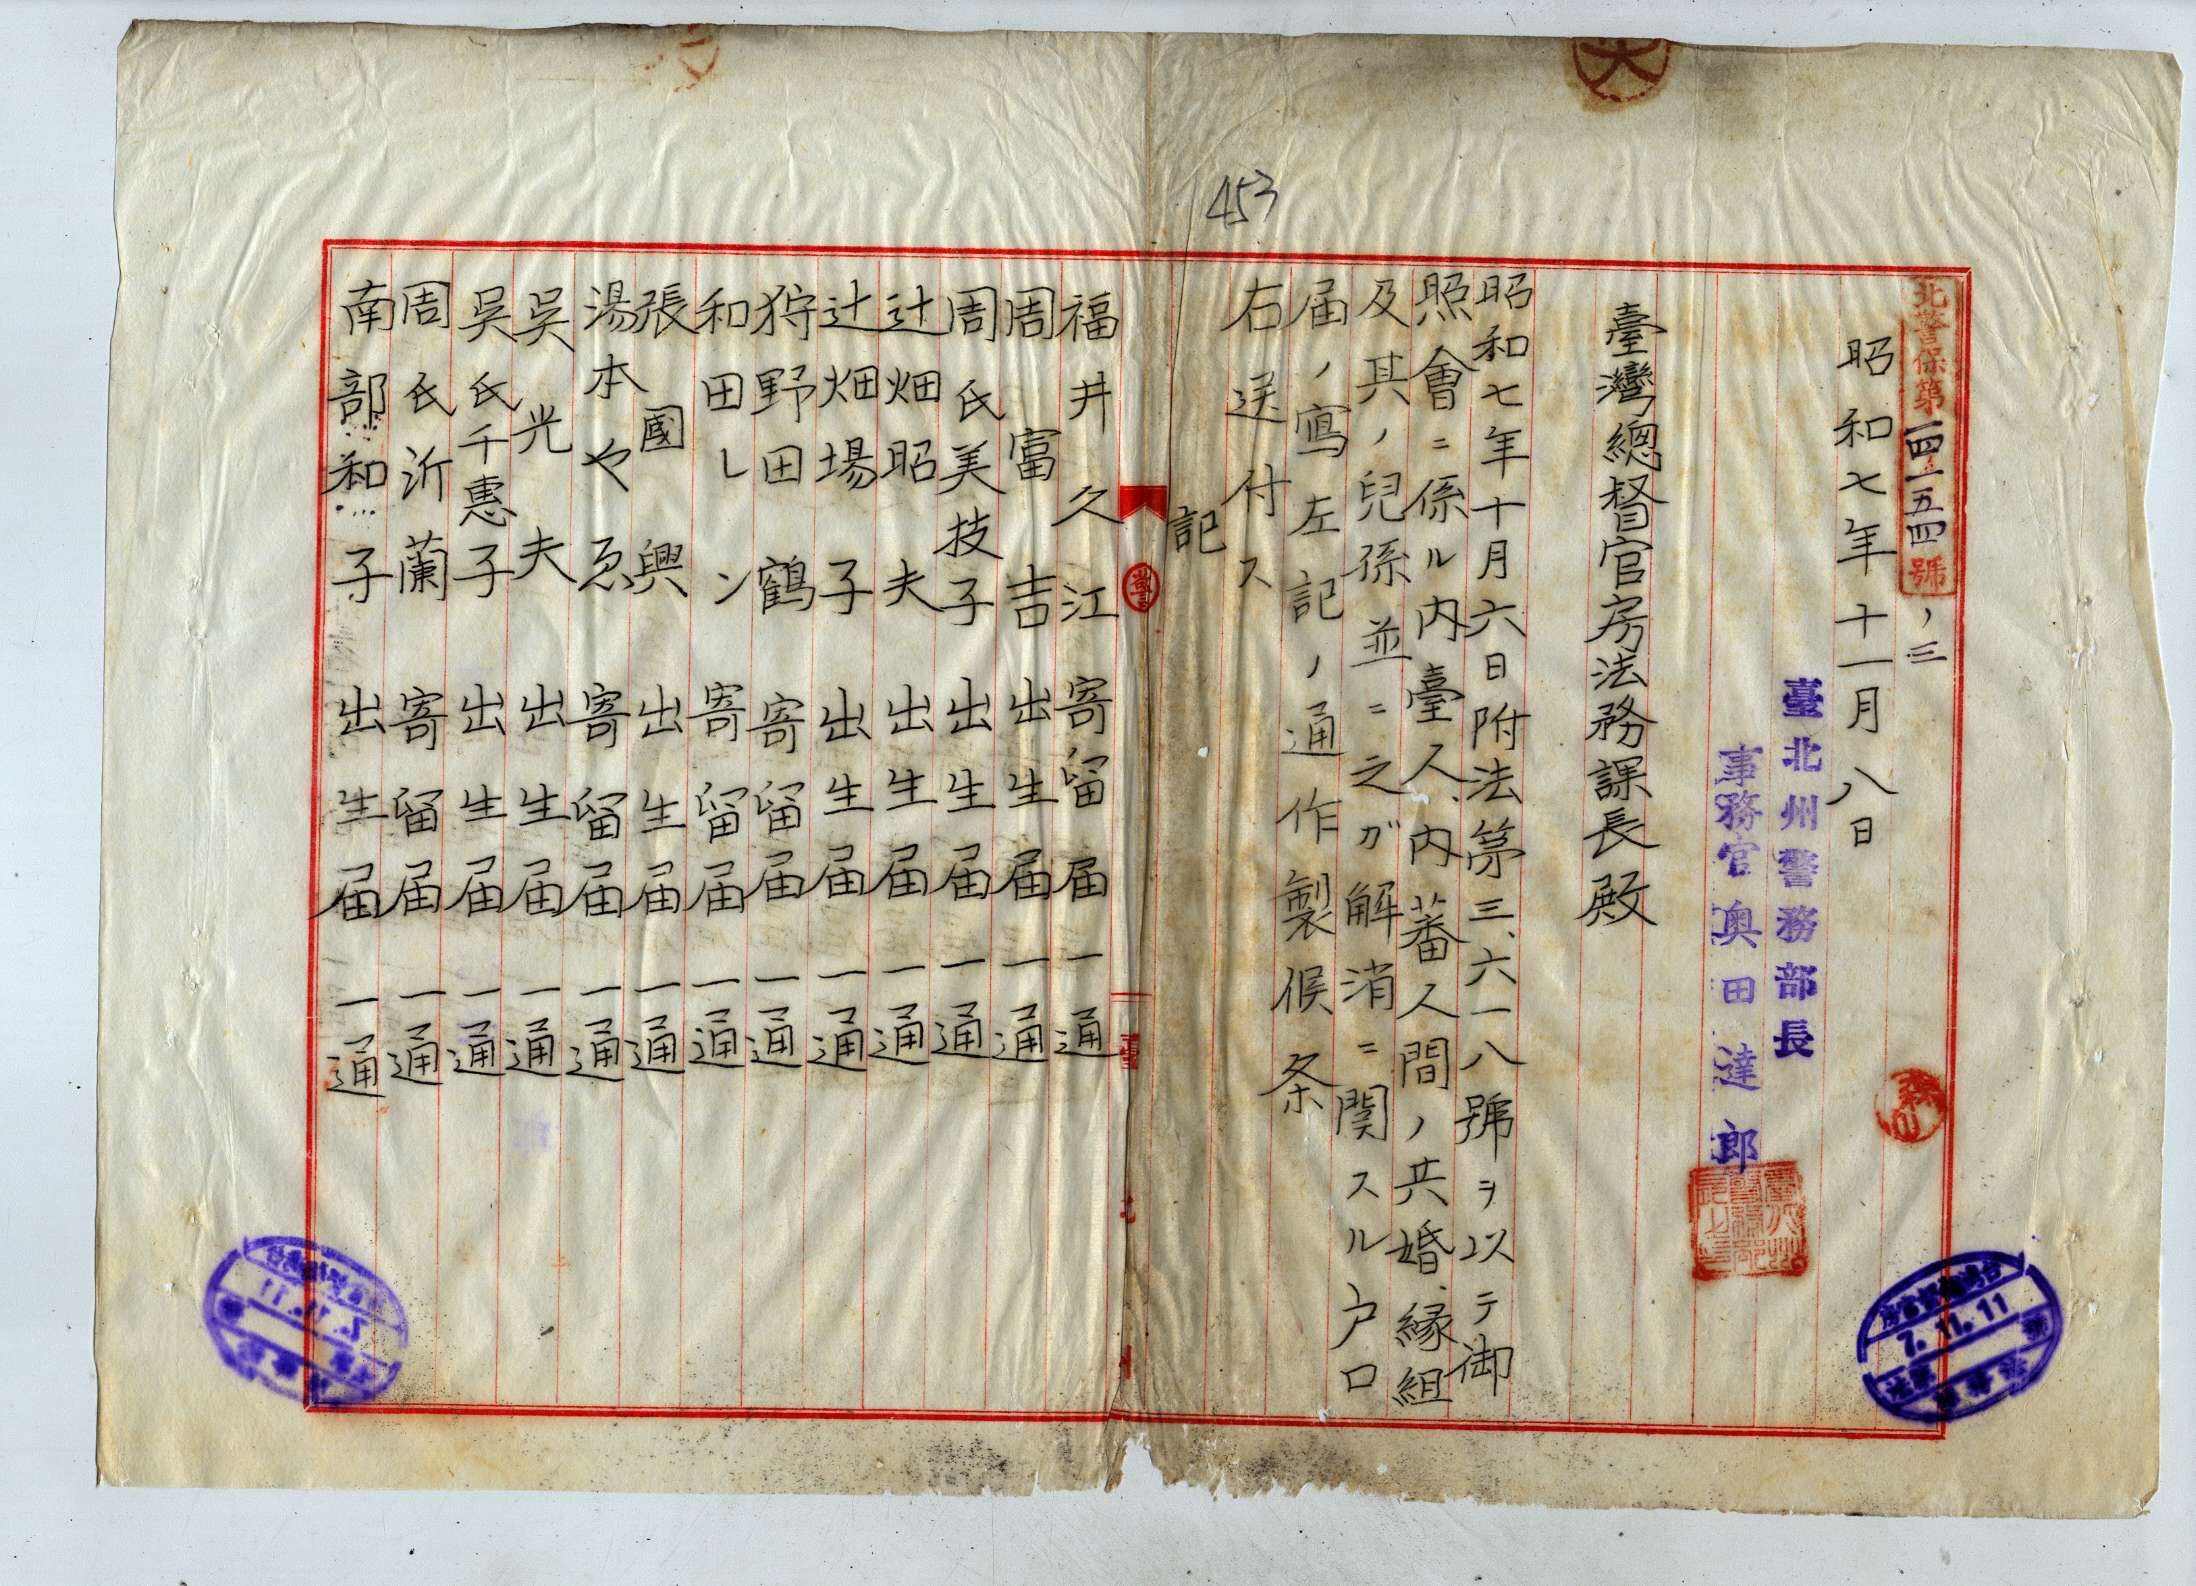 453
北警保第一四一五四號ノ三
昭和七年十一月八日
臺北州警務部長
事務官奥田達郎
臺灣總督官房法務課長殿
昭和七年十月六日附法第三、六一八號ヲ以テ御
照會ニ係ル内臺人、内蕃人間ノ共婚、縁組
及其ノ兒孫並ニ之ガ解消ニ関スル戸口
届ノ寫左記ノ通作製候条
右送付ス
記
福井久江 寄留届一通
周富吉 出生届一通
周氏美技子 出生届一通
辻畑昭夫 出生届一通
辻畑場子 出生届一通
狩野田鶴 寄留届一通
和田レン 寄留届一通
張國興 出生届一通
湯本やゑ 寄留届一通
吳光夫 出生届一通
吳氏千惠子 出生届一通
周氏沂蘭 寄留届一通
南部和子 出生届一通
7.11.11